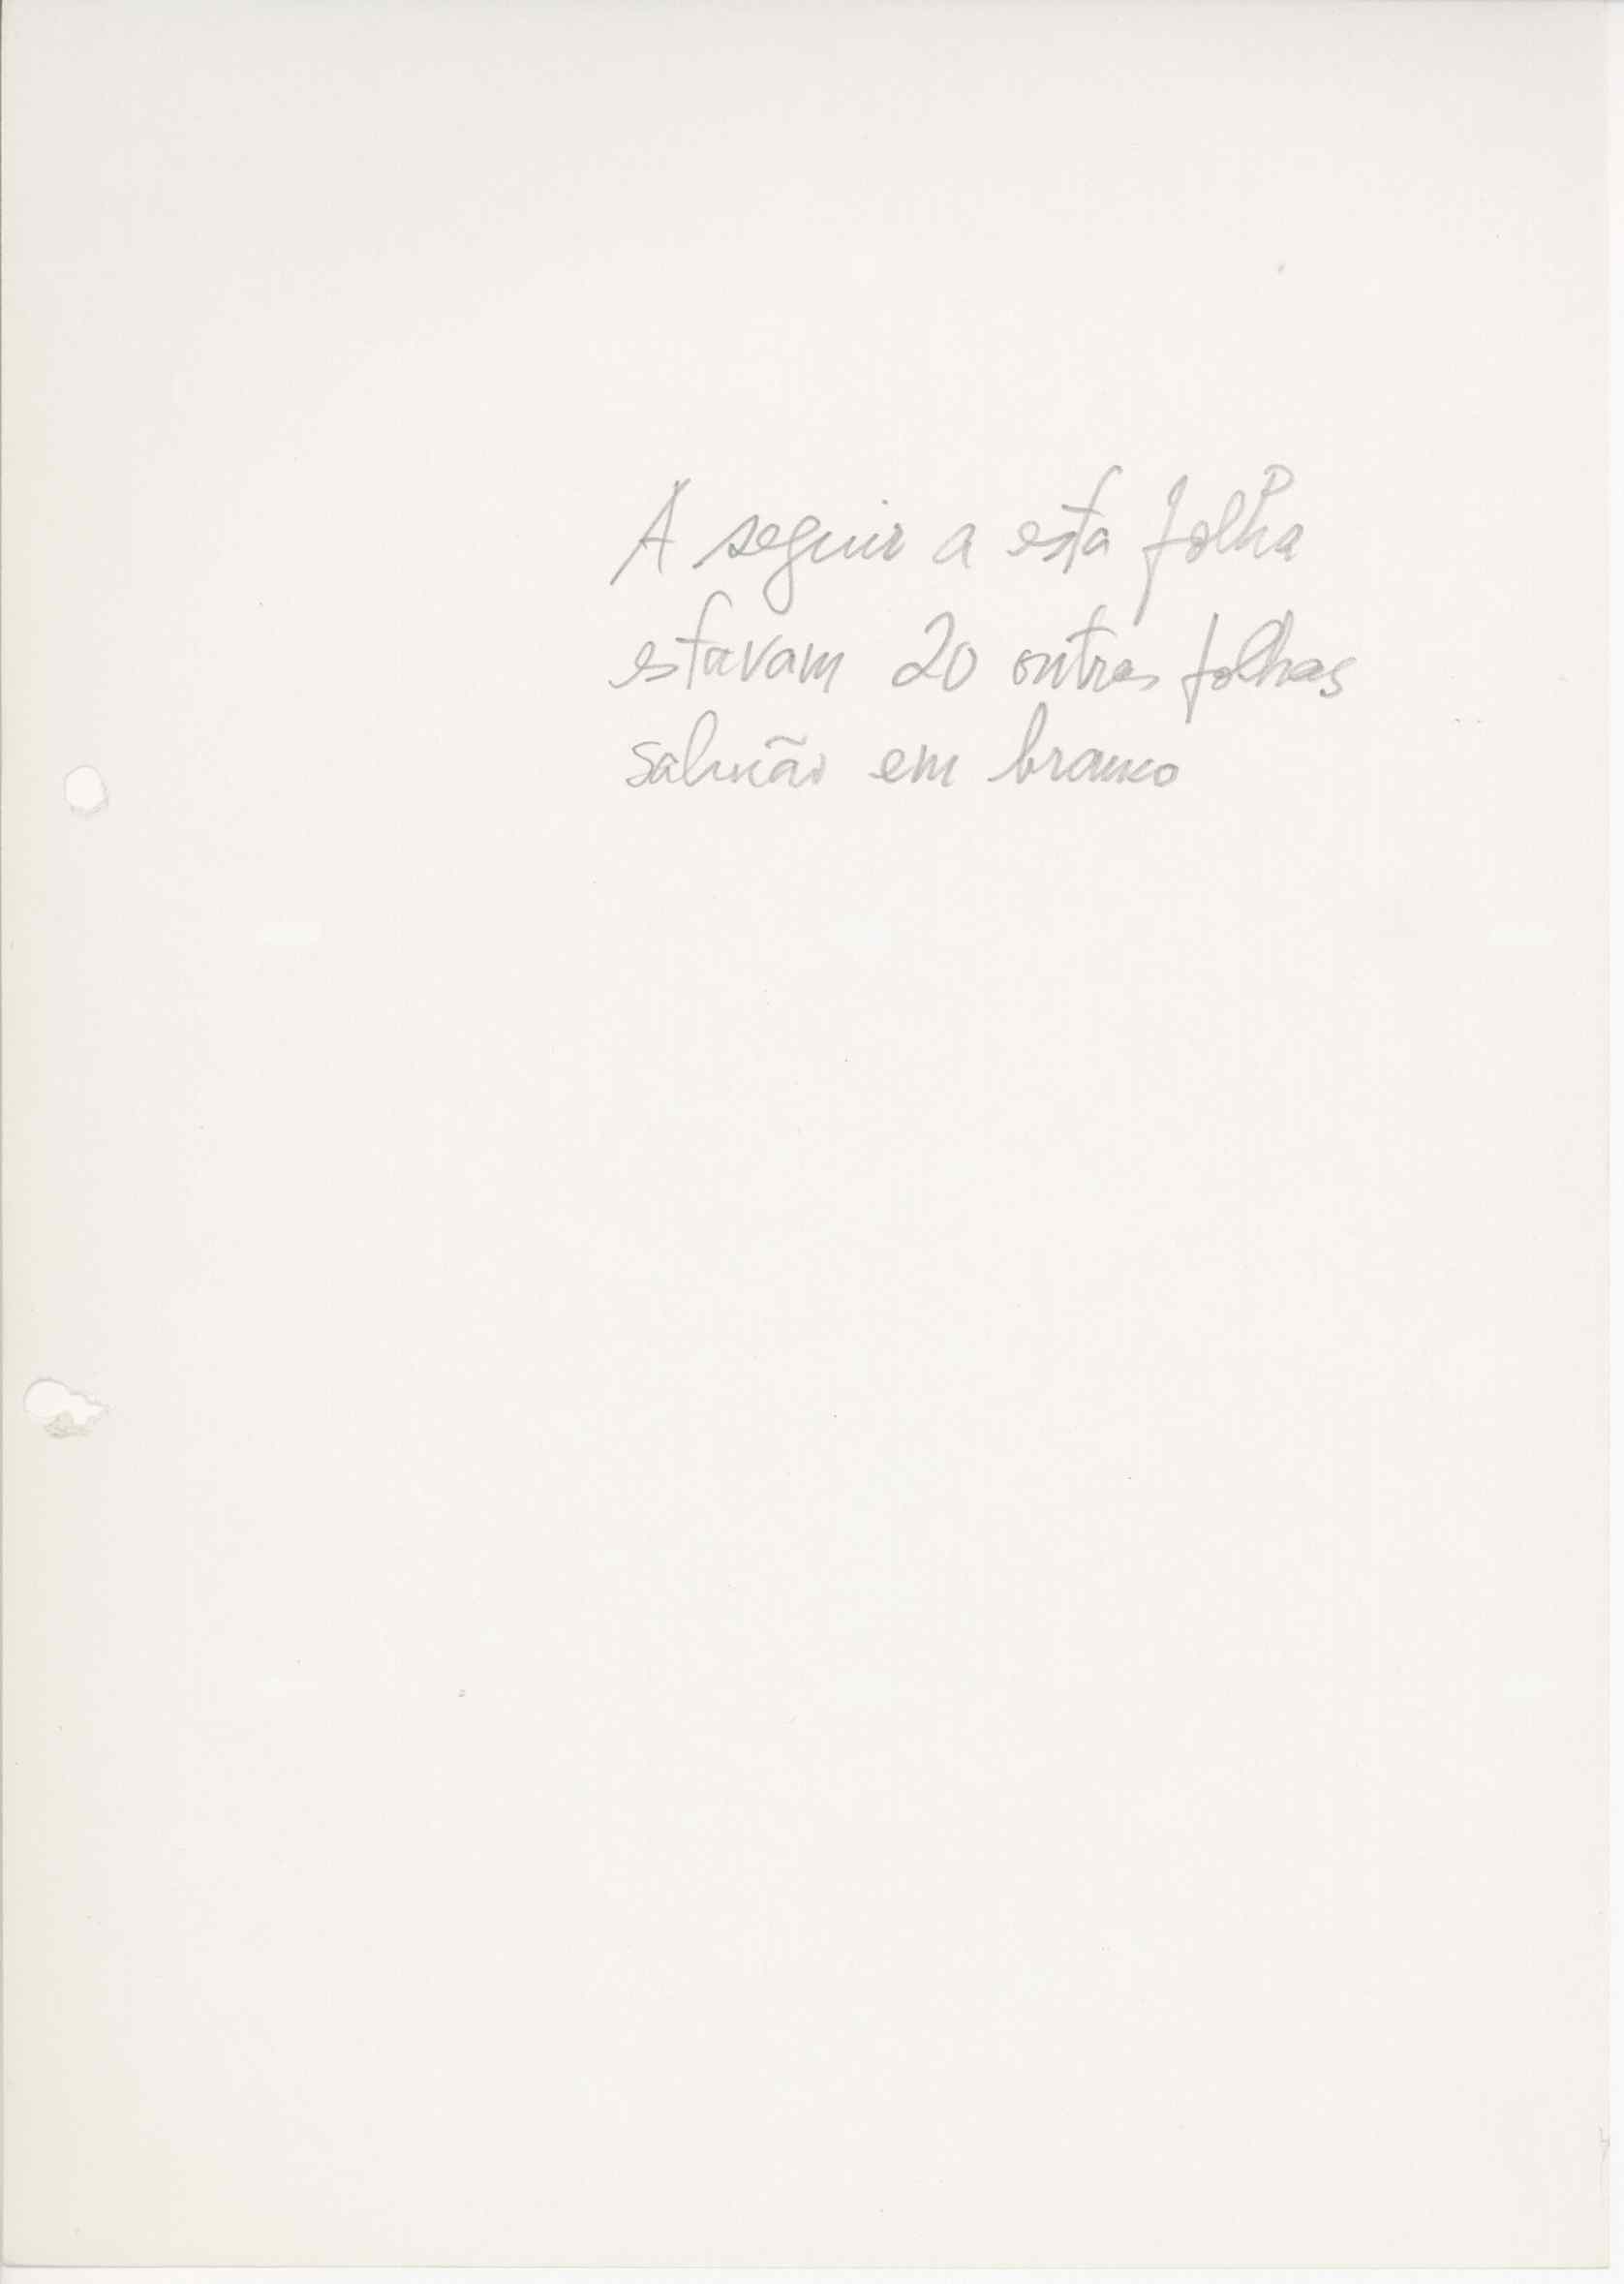 A seguir a esta folha
estavam 20 outras folhas
salmão em branco